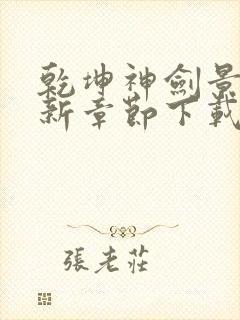 乾坤神劍景
新章節下載
張老莊